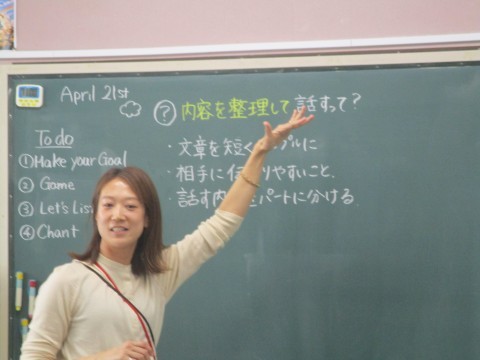 April 21st
To do
① Make your Goal
② Game
③ Let's Lis
④ Chant
? 内容を整理して話すって?
・文章を短く プルに
・相手に伝 りやすいこと.
・話す内 パートに分ける.